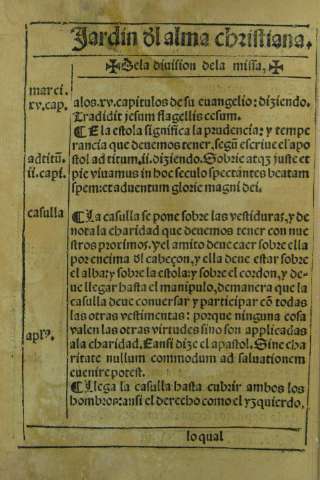 Jardin ðl alma christiana.
✠ Dela diuision dela missa. ✠
marci.
xv. cap.
alos.xv.capitulos de su euangelio: diziendo.
Tradidit jesum flagellis cesum.
¶ E la estola significa la prudencia: y tempe
rancia que deuemos tener, segũ escriue el apo
adtitũ.
ii. capi.
stol ad titum.ii. diziendo. Sobrie atqʒ juste et
pie viuamus in hoc seculo spectãtes beatam
spem: et aduentum glorie magni dei.
casulla
¶ La casulla se pone sobre las vestiduras, y de
nota la charidad que deuemos tener con nue
stros proximos. y el amito deue caer sobre ella
por encima ðl cabeçon, y ella deue estar sobre
el alba: y sobre la estola: y sobre el cordon, y de
ue llegar hasta el manipulo, demanera que la
casulla deue conuersar y participar cõ todas
las otras vestimentas: porque ninguna cosa
valen las otras virtudes sino son applicadas
apl'.
ala charidad. E ansi dize el apastol. Sine cha
ritate nullum commodum ad saluationem
euenire potest.
¶ Llega la casulla hasta cubrir ambos los
hombros: ansi el derecho como el yzquierdo,
lo qual